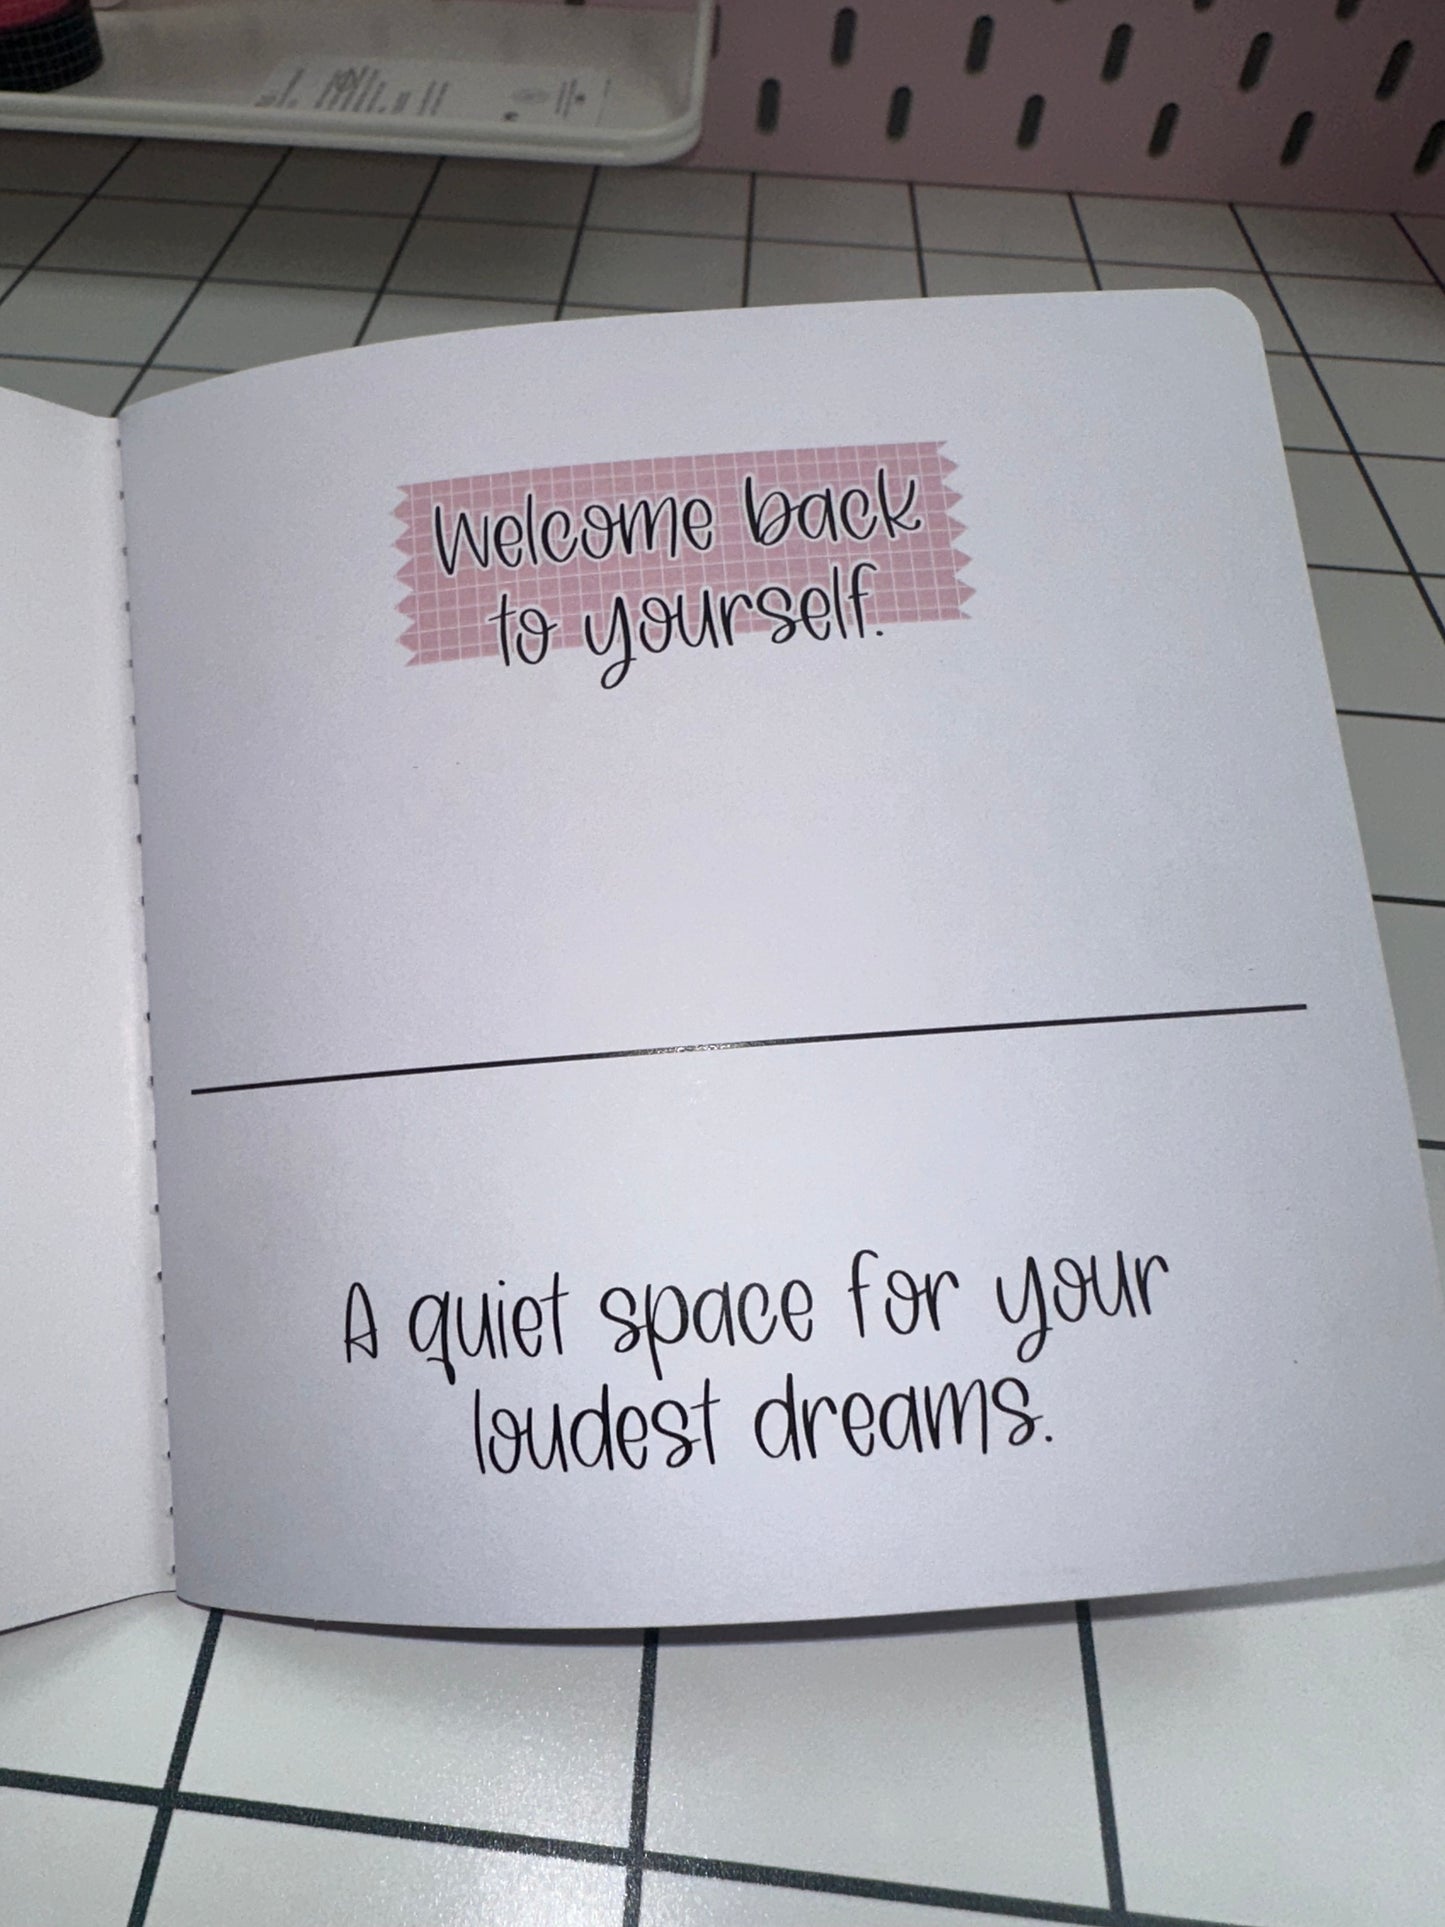 Welcome back
to yourself.
A quiet space for your
loudest dreams.